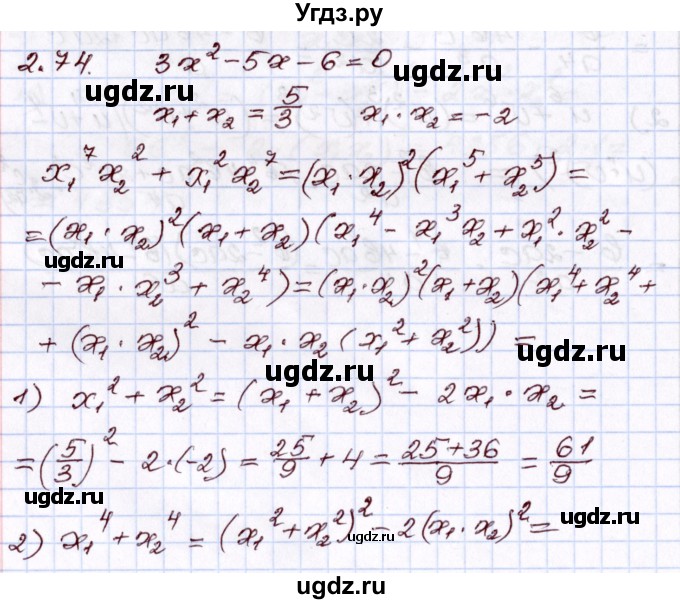 Угдз.ру
2.74. 3x² - 5x - 6 = 0
ugdz.ru
ugdz.ru
x₁ + x₂ = 5/3 x₁ · x₂ = -2
ugdz.ru
x₁⁷x₂² + x₁²x₂⁷ = (x₁ · x₂)²(x₁⁵ + x₂⁵) =
= (x₁ · x₂)²(x₁ + x₂)(x₁⁴ - x₁³x₂ + x₁² · x₂² -
ugdz.ru
ugdz.ru
- x₁ · x₂³ + x₂⁴) = (x₁ · x₂)²(x₁ + x₂)(x₁⁴ + x₂⁴ +
+ (x₁ · x₂)² - x₁ · x₂(x₁² + x₂²)) =
ugdz.ru
ugdz.ru
1) x₁² + x₂² = (x₁ + x₂)² - 2x₁ · x₂ =
= (5/3)² - 2 · (-2) = 25/9 + 4 = (25+36)/9 = 61/9
ugdz.ru
ugdz.ru
2) x₁⁴ + x₂⁴ = (x₁² + x₂²)² - 2(x₁ · x₂)² =
ugdz.ru
ugdz.ru